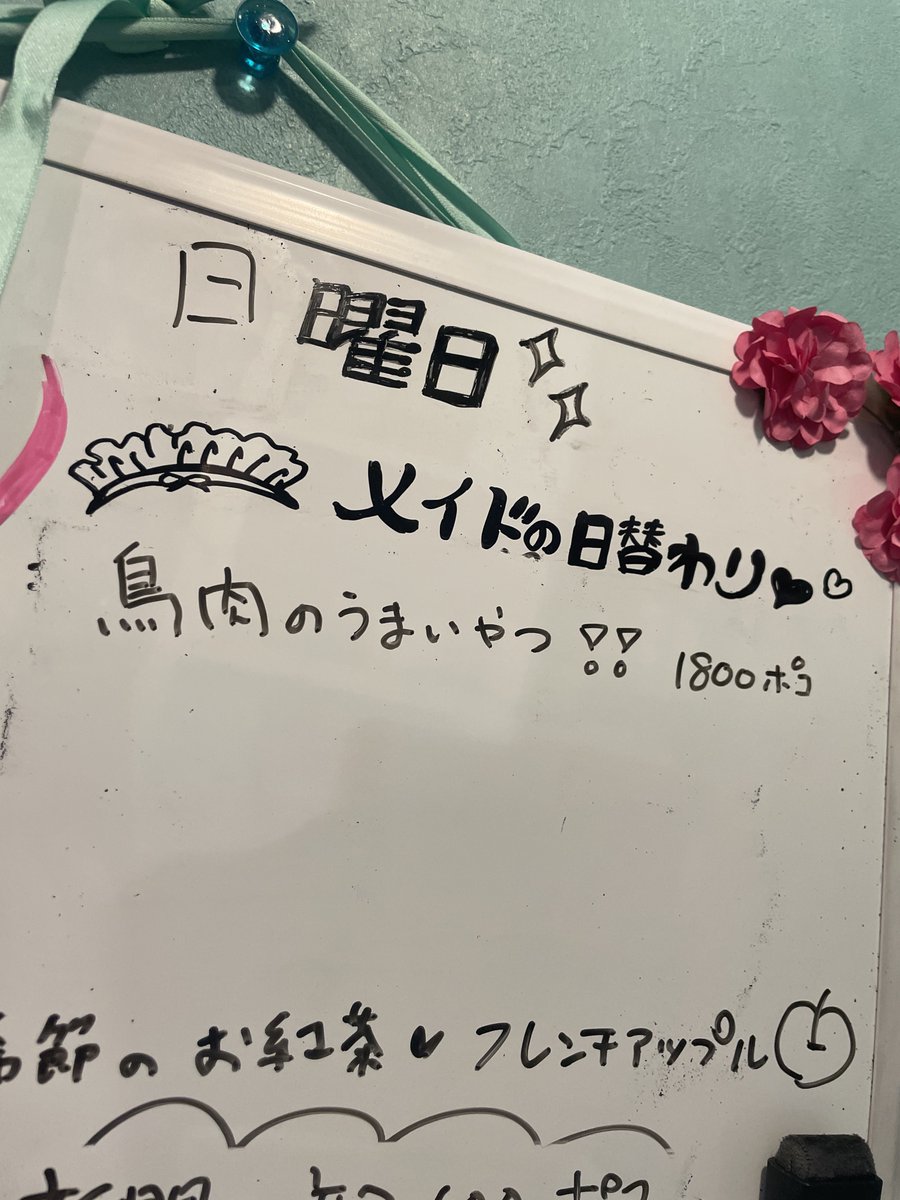 日曜日
メイドの日替わり
鳥肉のうまいやつ!! 1800ポコ
節のお紅茶 フレンチアップル